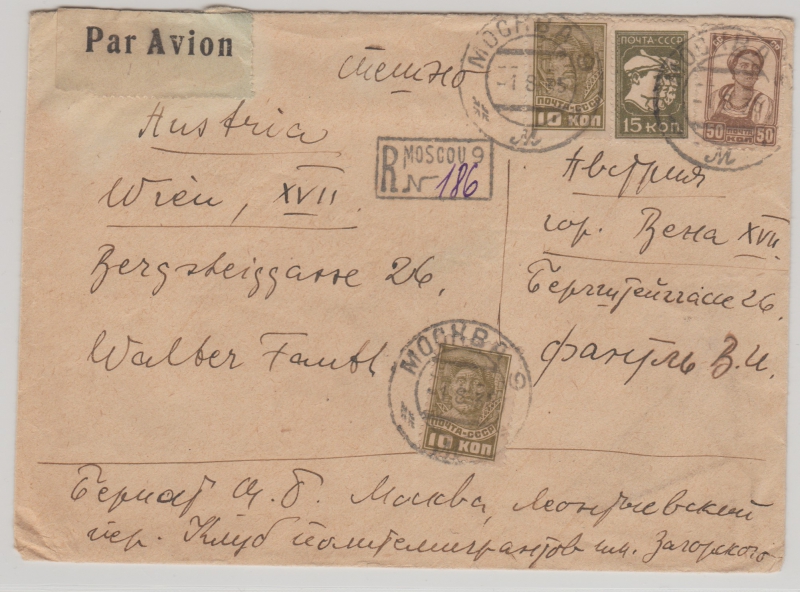 Par Avion
Спешно
МОСКВА 9
ПОЧТА-СССР
10 КОП
ПОЧТА-СССР
15 КОП.
50 КОП 50
R MOSCOU 9
№ 186
Austria
Wien, XVII
Bergsteiggasse 26,
Walter Fantl
Австрия
гор. Вена XVII
Бергштейггассе 26
Фантль В.И.
МОСКВА 9
ПОЧТА-СССР
10 КОП
Бернат Москва, Леонтьевский
пер. Клуб политэмигрантов им. Загорского